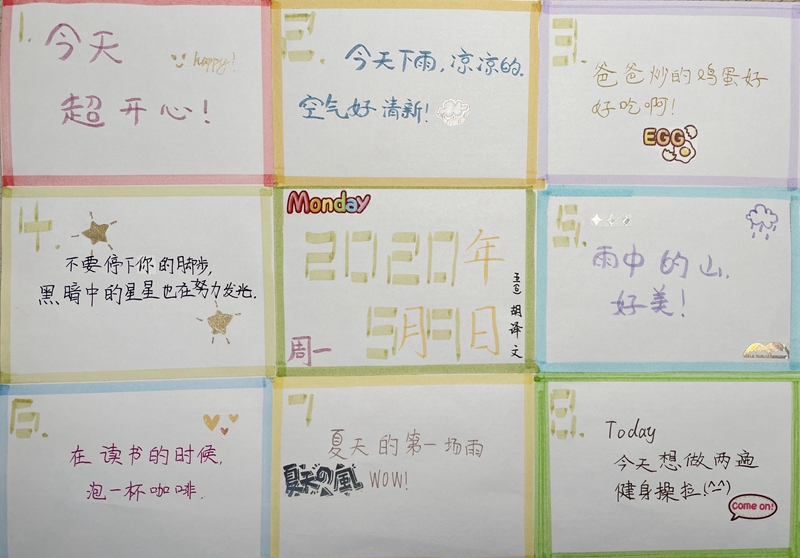 1.
今天
happy!
超开心!
2.
今天下雨,凉凉的.
空气好清新!
3.
爸爸炒的鸡蛋好
好吃啊!
EGG
4.
不要停下你的脚步,
黑暗中的星星也在努力发光.
Monday
2020年
5月9日
周一
胡译文
5.
雨中的山,
好美!
6.
在读书的时候,
泡一杯咖啡.
7
夏天的第一场雨
夏天の風
WOW!
8.
Today
今天想做两遍
健身操拉!(^^)
Come on!